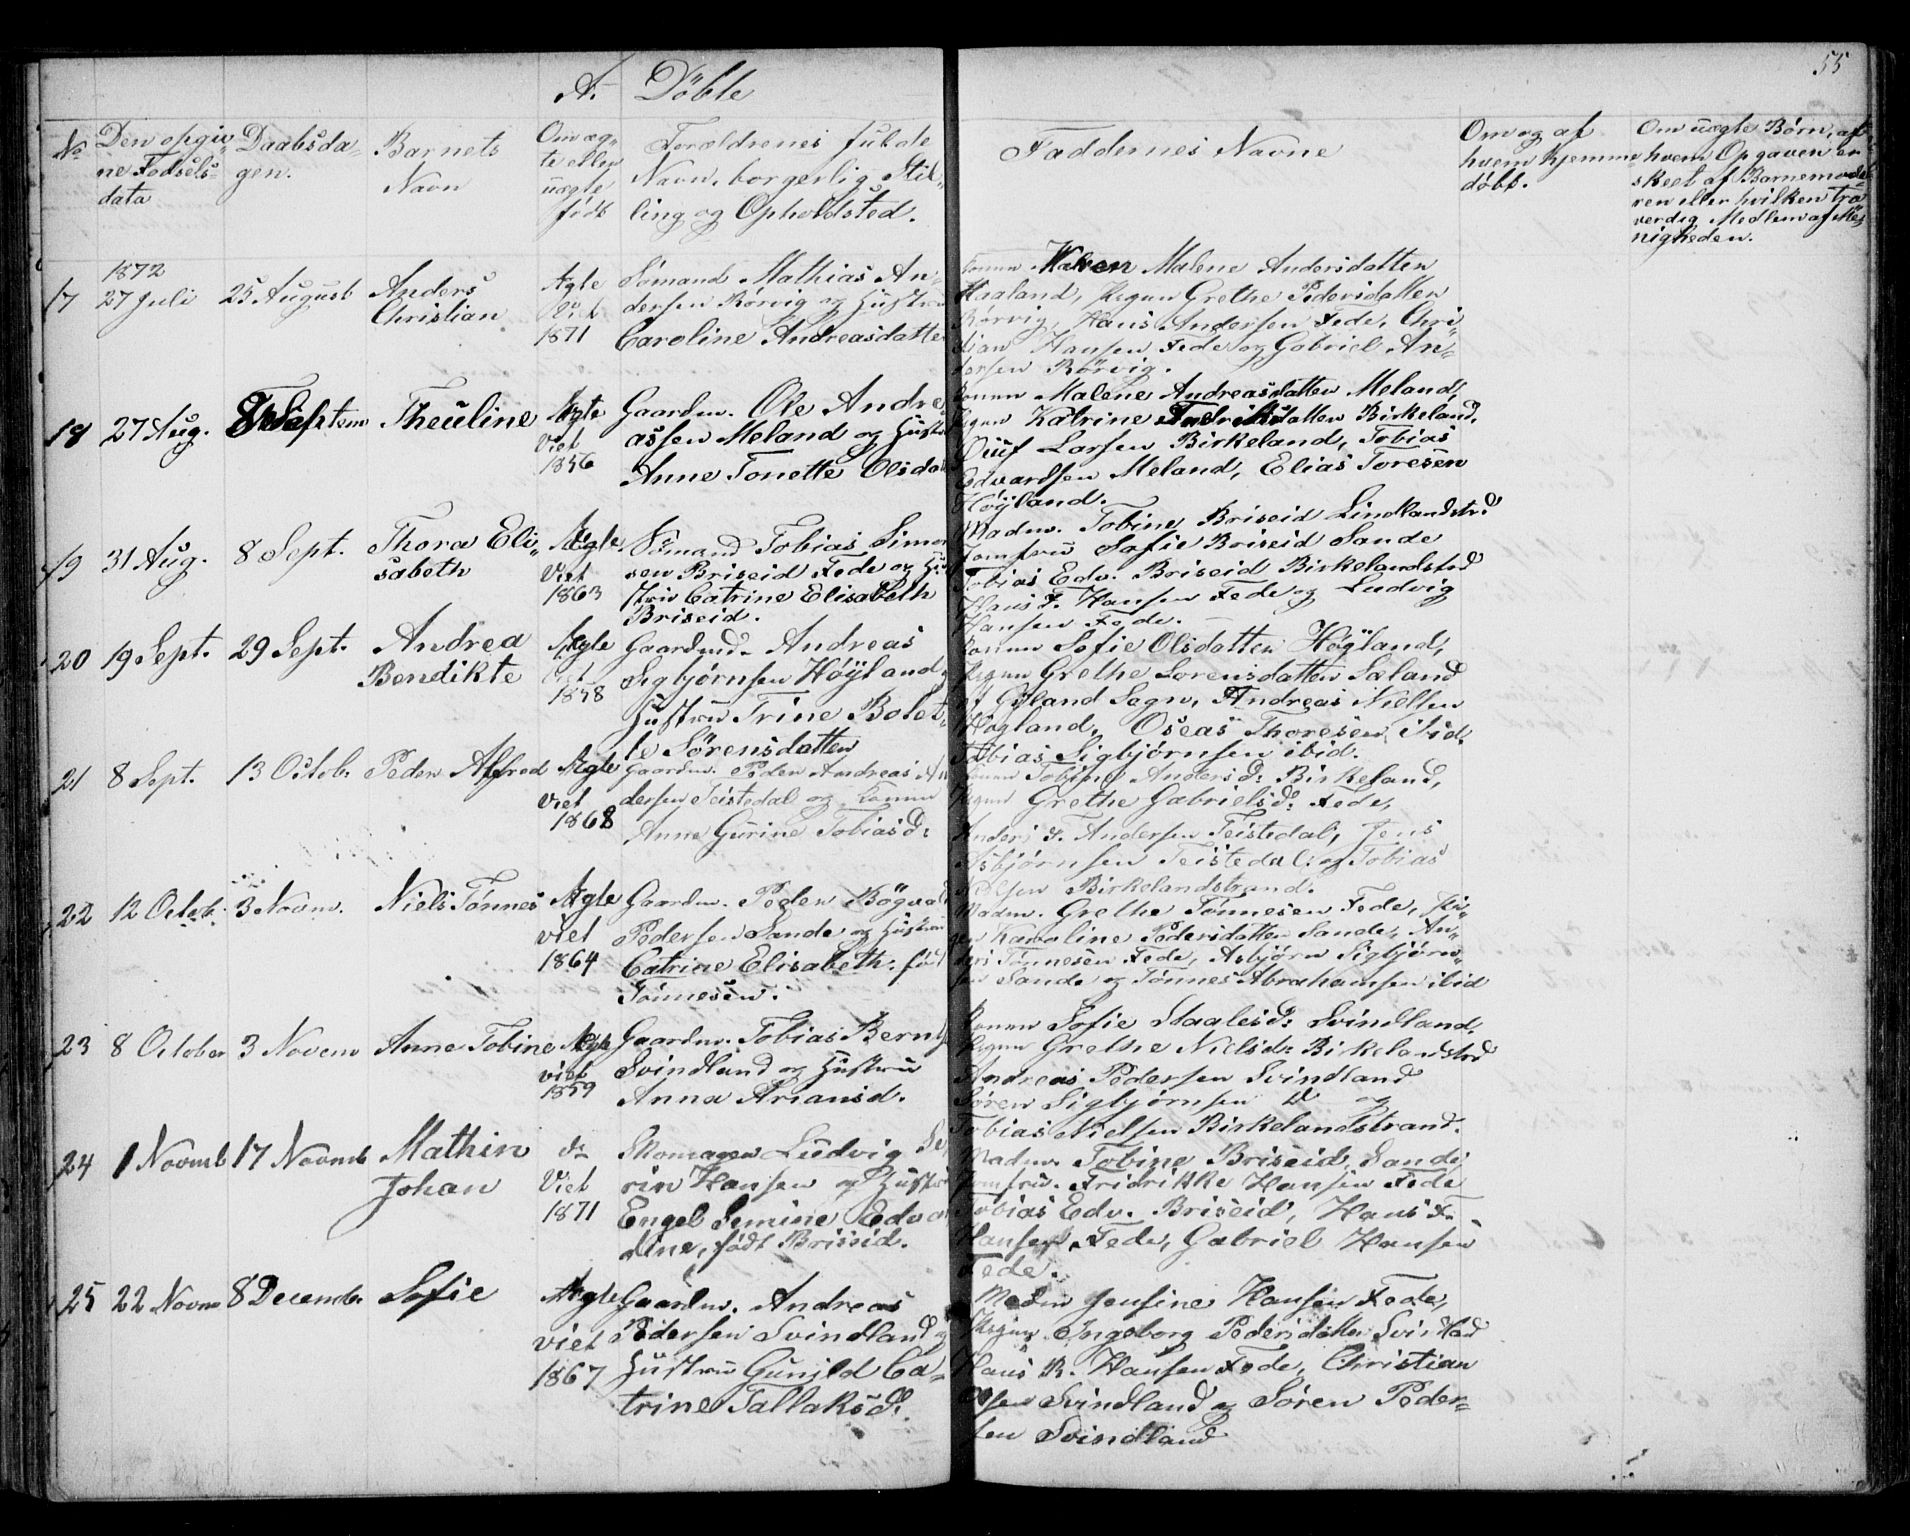 55
A. Döbte
No
Den opgiv
ne Fødsels-
data
Daabsda-
gen.
Barnets
Navn
Om æg-
te eller
uægte
født
Forældrenes fulde
Navn, borgerlig Stil-
ling og Opholdsted.
Faddernes Navne
Om og af
hvem hjemme
döbt.
Om uægte Børn, af
hvem Opgaven er
skeet af Barnemode-
ren eller hvilken tro
verdig Medlem af Me-
nigheden.
1872
17 27 Juli 25 August Anders
Christian
Ægte
Viet
1871
Sömand Mathias An-
dersen Rörvig og Hustru
Caroline Andreasdatter
Konen Malene Andersdatten
Haaland, Pigen Grethe Pedersdatten
Rörvig, Hans Andersen Fede, Chri-
stian Hansen Fede og Gabriel An-
dersen Rörvig.
18 27 Aug. 8 Septem Theuline
Ægte
Viet
1856
Gaardm. Ole Andre-
assen Meland og Hustru
Anne Tonette Olsdat
Konen Malene Andreasdatten Meland,
Pigen Katrine Fredriksdatten Birkeland,
Larsen Birkeland, Tobias
Edvardsen Meland, Elias Toresen
Höÿland.
19 31 Aug. 8 Sept. Thora Eli-
sabeth
Ægte
Viet
1863
Sömand Tobias Simon
sen Briseid Fede og Hu
stru Catrine Elisabeth
Briseid.
Madm. Tobine Briseid Lindlandstrd
Jomfru Sofie Briseid Sande
Tobias Edv. Briseid Birkelandstrd
Hans F. Hansen Fede og Ludvig
Hansen Fede.
20 19 Sept. 29 Sept. Andrea
Bendikte
Ægte
Viet
1858
Gaardmd. Andreas
Sigbjørnsen Höÿland,
Hustru Trine Bolet-
te Sörensdatten
Konen Sofie Olsdatten Högland,
Pigen Grethe Lorensdatten Sæland
af Gÿland Sogn, Andreas Nielsen
Högland, Oseas Thoresen ibid.
Tobias Sigbjørnsen ibid.
21 8 Sept. 13 Octob. Peder Alfred
Ægte
Viet
1868
Gaardm. Peder Andreas An
dersen Teistedal og Konen
Anne Gurine Tobiasd:
Konen Tobine Andersd: Birkeland,
Pigen Grethe Gabrielsd: Fede,
Anders F. Andersen Teistedal, Jens
Asbjørnsen Teistedal og Tobias
Nielsen Birkelandstrand.
22 12 Octob. 3 Novm. Niels Tønnes
Ægte
Viet
1864
Gaardm. Peder Bögvald
Pedersen Sande og Hustru
Catrine Elisabeth, född
Tönnesen.
Madm. Grethe Tönnesen Fede, Pi-
gen Karoline Pedersdatten Sande, An-
ders Tönnesen Fede, Asbjørn Sigbjørn-
sen Sande og Tönnes Abrahamsen ibid
23 8 October 3 Novem Anne Tobine
Ægte
viet
1859
Gaardm. Tobias Bernt
Svindland og Hustru
Anna Ariansd.
Konen Sofie Staalesd: Svindland.
Pigen Grethe Nielsd: Birkelandstrd
Andreas Pedersen Svindland
Sören Sigbjørnsen D og
Tobias Nielsen Birkelandstrand.
24 1 Novmb 17 Novmb Mathin
Johan
do
Viet
1871
Skomager Ludvig Se
rin Hansen og Hustru
Engel Semine Edvar
dine, født Briseid.
Madm. Tobine Briseid, Sande
Jomfru. Fridrikke Hansen Fede
Tobias Edv. Briseid, Hans F.
Hansen, Fede, Gabriel Hansen
Fede.
25 22 Novm 8 Decemb. Sofie
Ægte
viet
1867
Gaardm. Andreas
Pedersen Svindland og
Hustru Gunild Ca-
trine Tallaksd.
Madm Jensine Hansen Fede,
Pigen Ingeborg Pedersdatter Svindland
Hans R. Hansen Fede, Christian
Olsen Svindland og Sören Peder-
sen Svindland